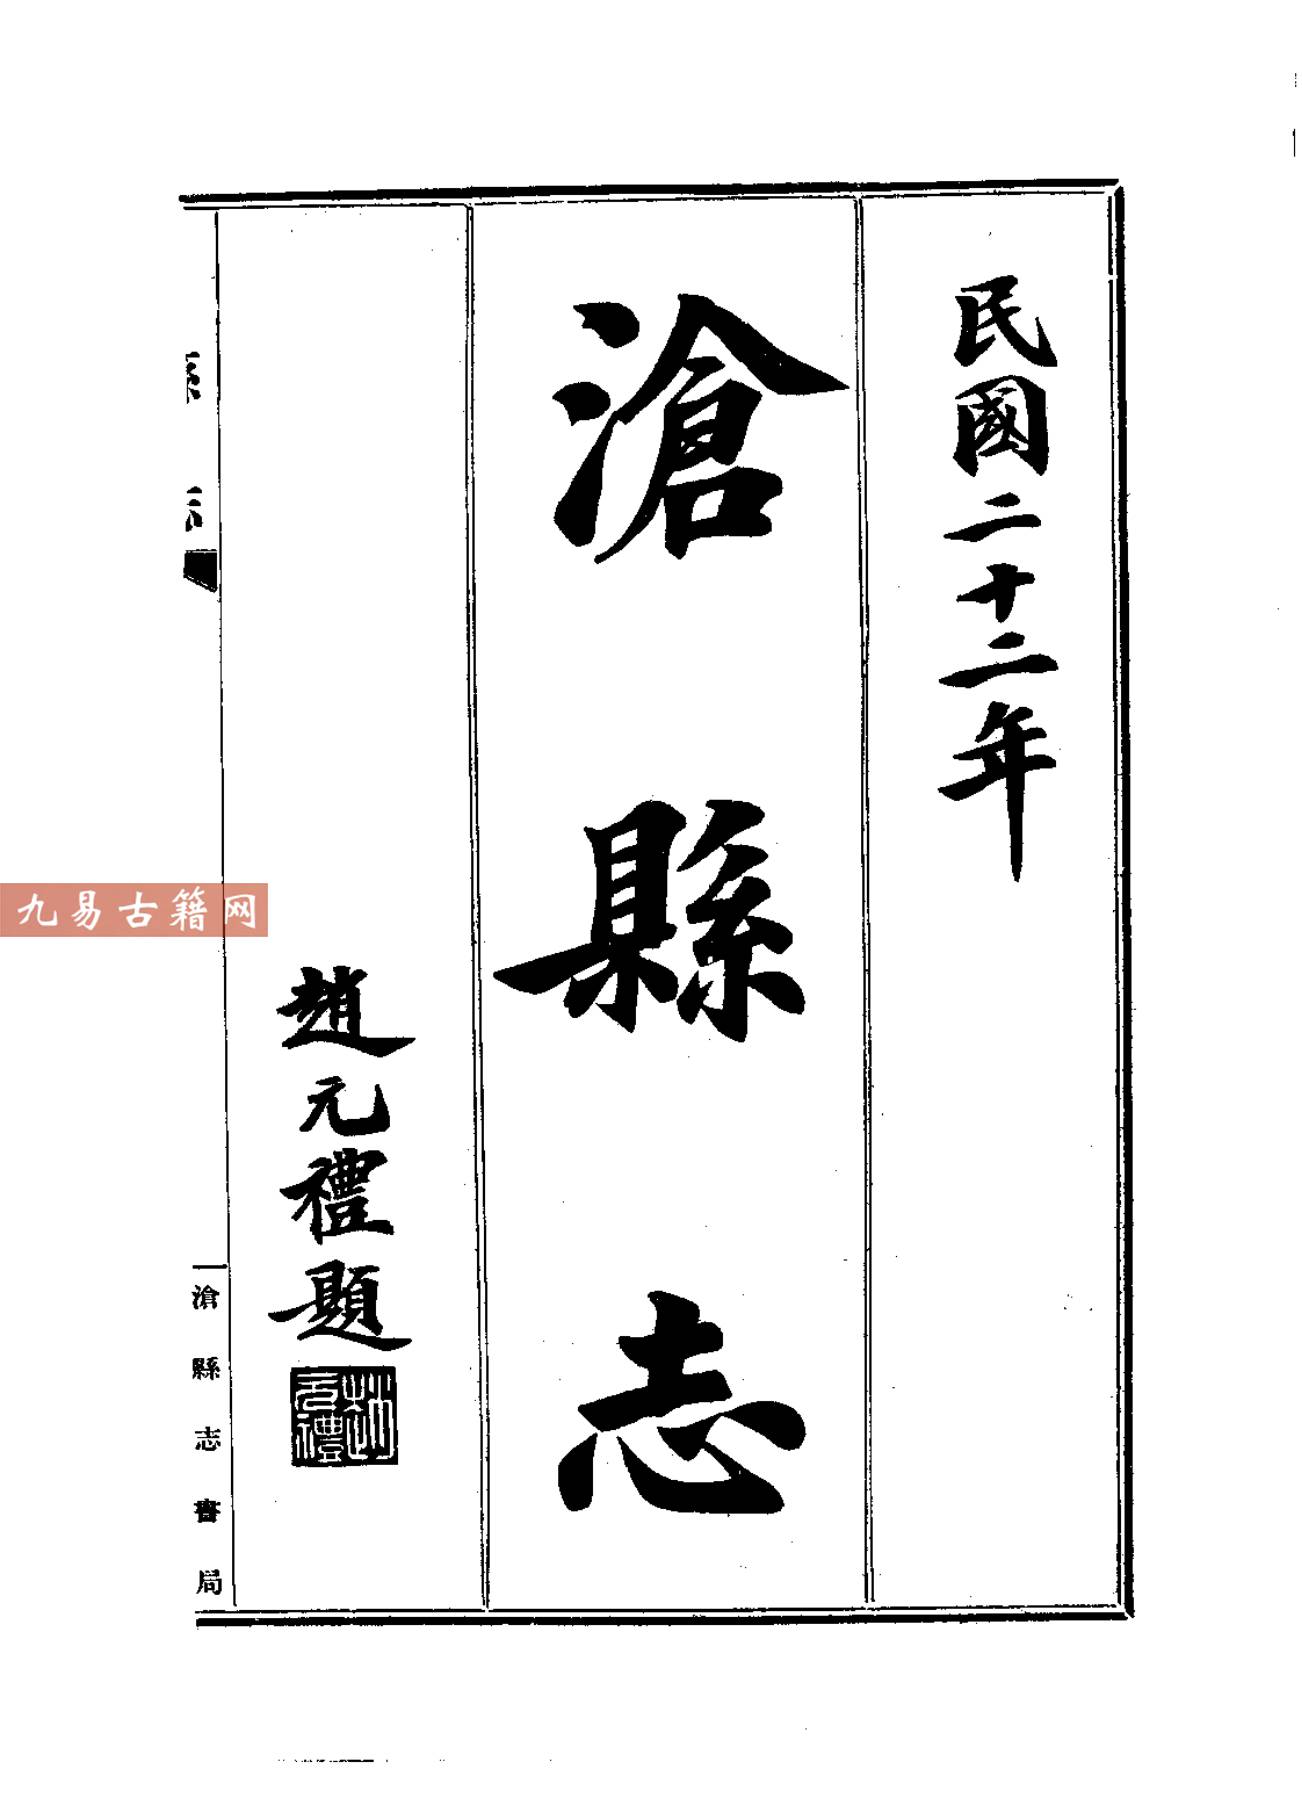 民國二十二年
滄縣志
趙元禮題
趙元禮
滄縣志書局
九易古籍网